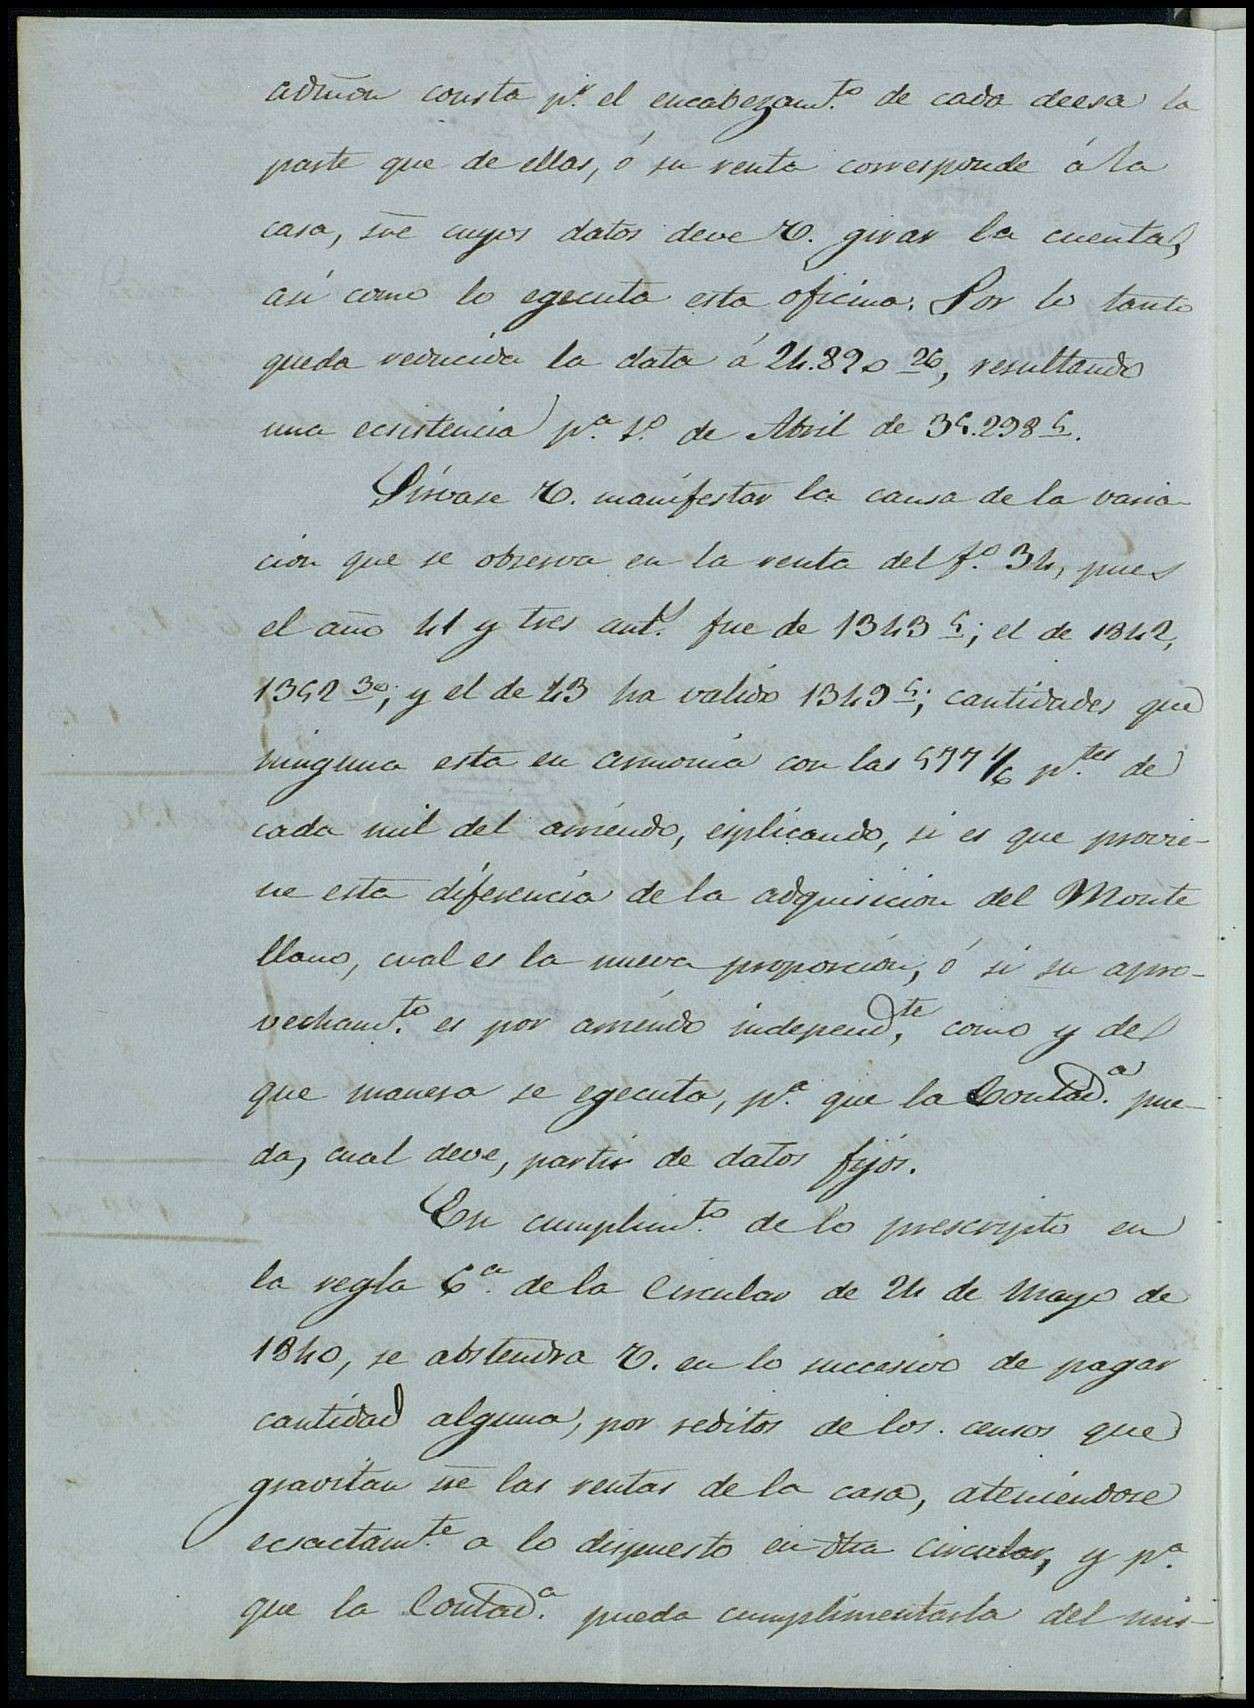 admon consta pr. el encabezamto. de cada deesa la
parte que de ellas, ó su renta corresponde á la
casa, sre cuyos datos deve V. girar la cuenta,
asi como lo egecuta esta oficina. Por lo tanto
queda reducida la data á 24.820 26, resultando
una ecsistencia pa. 1o. de Abril de 35.298 5.
Sírvase V. manifestar la causa de la varia
cion que se observa en la renta del fo. 34, pues
el año 41 y tres ants. fue de 1343 5; el de 1842,
1352 30; y el de 43 ha valido 1349 5; cantidades que
ninguna esta en armonía con las 577 1/6 ptes. de
cada mil del arriendo, esplicando, si es que provie-
ne esta diferencia de la adquisicion del Monte
llano, cual es la nueva proporcion, ó si su apro-
vechamto. es por arriendo independte, como y de
que manera se egecuta, pa. que la Contada. pue-
da, cual deve, partir de datos fijos.
En cumplimto. de lo prescripto en
la regla 6a. de la Circular de 24 de Mayo de
1840, se abstendra V. en lo succesivo de pagar
cantidad alguna, por reditos de los censos que
gravitan sre las rentas de la casa, ateniendose
ecsactamte. a lo dispuesto en dha circular, y pa.
que la Contada. pueda cumplimentarla del mis-